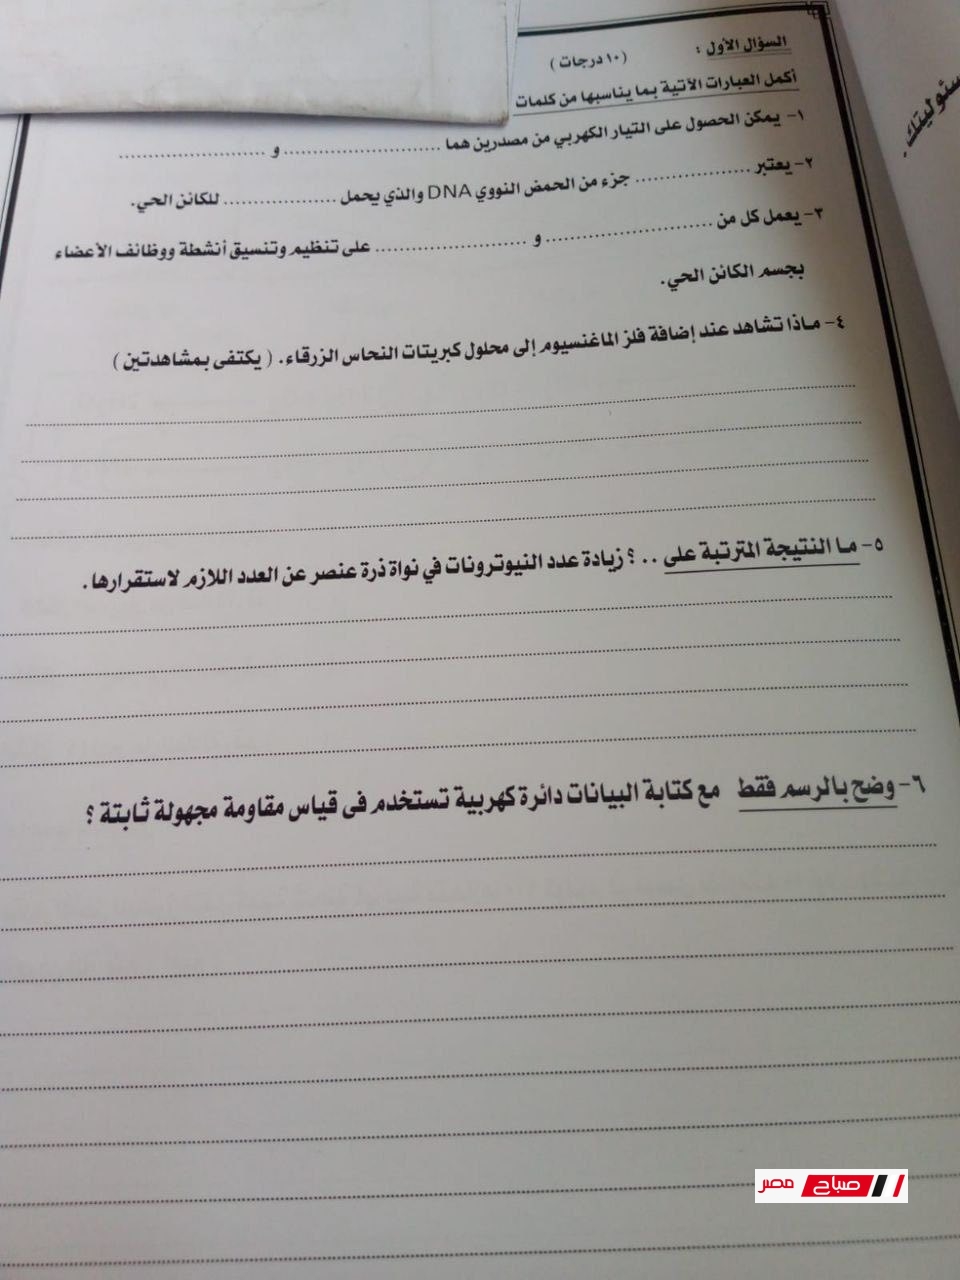 السؤال الأول : (١٠ درجات)
أكمل العبارات الآتية بما يناسبها من كلمات
١- يمكن الحصول على التيار الكهربي من مصدرين هما .......................... و ..........................
٢- يعتبر .................... جزء من الحمض النووي DNA والذي يحمل .................... للكائن الحي.
٣- يعمل كل من .......................... و .......................... على تنظيم وتنسيق أنشطة ووظائف الأعضاء
بجسم الكائن الحي.
٤- ماذا تشاهد عند إضافة فلز الماغنسيوم إلى محلول كبريتات النحاس الزرقاء. ( يكتفى بمشاهدتين )
٥- ما النتيجة المترتبة على .. ؟ زيادة عدد النيوترونات في نواة ذرة عنصر عن العدد اللازم لاستقرارها .
٦- وضح بالرسم فقط مع كتابة البيانات دائرة كهربية تستخدم فى قياس مقاومة مجهولة ثابتة ؟
صباح مصر